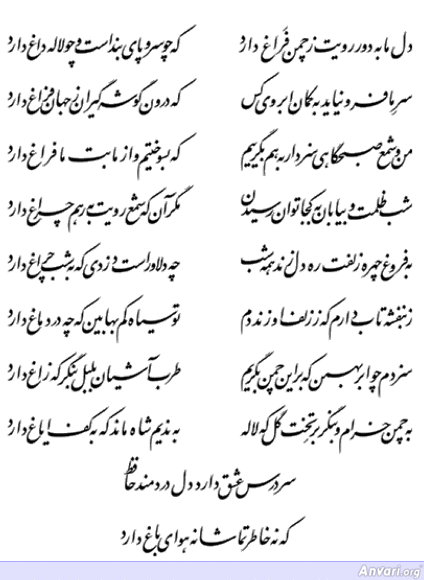 دل ما به دور رویت ز چمن فراغ دارد که چو سرو پای بند است و چو لاله داغ دارد
سر ما فرو نیاید به کمان ابروی کس که درون گوشه گیران ز جهان فراغ دارد
من و شمع صبحگاهی سزد ار به هم بگرییم که بسوختیم و از ما بت ما فراغ دارد
شب ظلمت و بیابان به کجا توان رسیدن مگر آن که شمع رویت به رهم چراغ دارد
به فروغ چهره زلفت ره دل زند همه شب چه دلاور است دزدی که به شب چراغ دارد
ز بنفشه تاب دارم که ز زلف او زند دم تو سیاه کم بها بین که چه در دماغ دارد
سزدم چو ابر بهمن که بر این چمن بگریم طرب آشیان بلبل بنگر که زاغ دارد
به چمن خرام و بنگر بر تخت گل که لاله به ندیم شاه ماند که به کف ایاغ دارد
سر درس عشق دارد دل دردمند حافظ
که نه خاطر تماشا نه هوای باغ دارد
Anvari.org